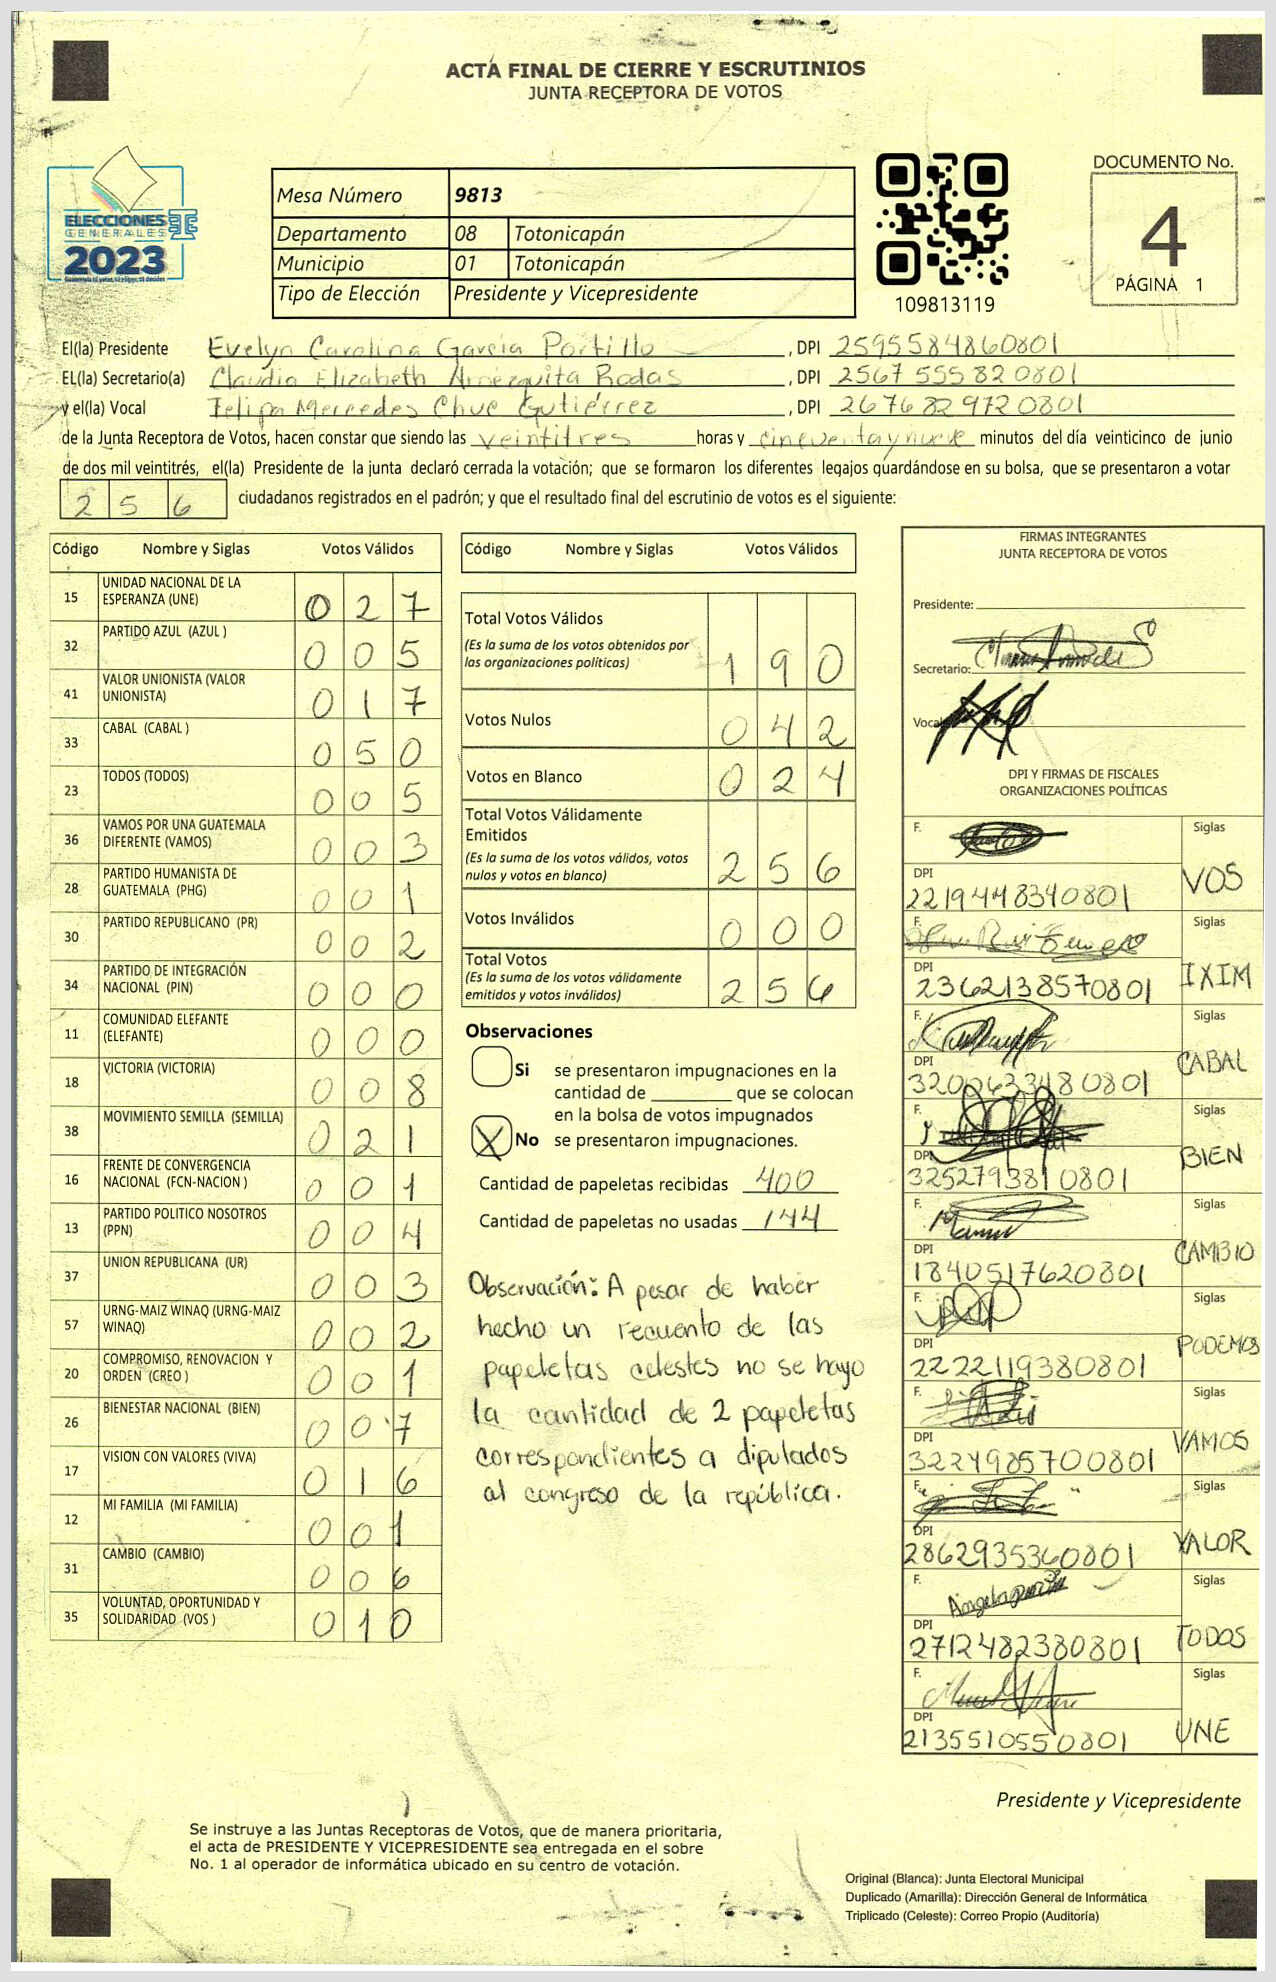 ACTA FINAL DE CIERRE Y ESCRUTINIOS
JUNTA RECEPTORA DE VOTOS
ELECCIONES
GENERALES
2023
Mesa Número 9813
Departamento 08 Totonicapán
Municipio 01 Totonicapán
Tipo de Elección Presidente y Vicepresidente
109813119
DOCUMENTO No.
4
PÁGINA 1
El(la) Presidente Evelyn Carolina García Portillo, DPI 2595584860801
EL(la) Secretario(a) Claudia Elizabeth Amézquita Rodas, DPI 2567555820801
y el(la) Vocal Felipa Mercedes Chuc Gutiérrez, DPI 2676829720801
de la Junta Receptora de Votos, hacen constar que siendo las veintitres horas y cincuenta y nueve minutos del día veinticinco de junio
de dos mil veintitrés, el(la) Presidente de la junta declaró cerrada la votación; que se formaron los diferentes legajos guardándose en su bolsa, que se presentaron a votar
256 ciudadanos registrados en el padrón; y que el resultado final del escrutinio de votos es el siguiente:
Código Nombre y Siglas Votos Válidos
15 UNIDAD NACIONAL DE LA ESPERANZA (UNE) 027
32 PARTIDO AZUL (AZUL ) 005
41 VALOR UNIONISTA (VALOR UNIONISTA) 017
33 CABAL (CABAL ) 050
23 TODOS (TODOS) 005
36 VAMOS POR UNA GUATEMALA DIFERENTE (VAMOS) 003
28 PARTIDO HUMANISTA DE GUATEMALA (PHG) 001
30 PARTIDO REPUBLICANO (PR) 002
34 PARTIDO DE INTEGRACIÓN NACIONAL (PIN) 000
11 COMUNIDAD ELEFANTE (ELEFANTE) 000
18 VICTORIA (VICTORIA) 008
38 MOVIMIENTO SEMILLA (SEMILLA) 021
16 FRENTE DE CONVERGENCIA NACIONAL (FCN-NACION ) 001
13 PARTIDO POLITICO NOSOTROS (PPN) 004
37 UNION REPUBLICANA (UR) 003
57 URNG-MAIZ WINAQ (URNG-MAIZ WINAQ) 002
20 COMPROMISO, RENOVACION Y ORDEN (CREO ) 001
26 BIENESTAR NACIONAL (BIEN) 007
17 VISION CON VALORES (VIVA) 016
12 MI FAMILIA (MI FAMILIA) 001
31 CAMBIO (CAMBIO) 006
35 VOLUNTAD, OPORTUNIDAD Y SOLIDARIDAD (VOS ) 010
Código Nombre y Siglas Votos Válidos
Total Votos Válidos
(Es la suma de los votos obtenidos por las organizaciones políticas) 190
Votos Nulos 042
Votos en Blanco 024
Total Votos Válidamente Emitidos
(Es la suma de los votos válidos, votos nulos y votos en blanco) 256
Votos Inválidos 000
Total Votos
(Es la suma de los votos válidamente emitidos y votos inválidos) 256
Observaciones
Si se presentaron impugnaciones en la
cantidad de ________ que se colocan
en la bolsa de votos impugnados
X No se presentaron impugnaciones.
Cantidad de papeletas recibidas 400
Cantidad de papeletas no usadas 144
Observación: A pesar de haber
hecho un recuento de las
papeletas celestes no se hayo
la cantidad de 2 papeletas
correspondientes a diputados
al congreso de la república.
FIRMAS INTEGRANTES
JUNTA RECEPTORA DE VOTOS
Presidente:
Secretario:
Vocal
DPI Y FIRMAS DE FISCALES
ORGANIZACIONES POLÍTICAS
F. Siglas
DPI 2219448340801 VOS
F. Siglas
DPI 2362138570801 IXIM
F. Siglas
DPI 3200633480801 CABAL
F. Siglas
DPI 3252793810801 BIEN
F. Siglas
DPI 1840517620801 CAMBIO
F. Siglas
DPI 2222119380801 PODEMOS
F. Siglas
DPI 3224985700801 VAMOS
F. Siglas
DPI 2862935360801 VALOR
F. Siglas
DPI 2712482380801 TODOS
F. Siglas
DPI 2135510550801 UNE
Presidente y Vicepresidente
Se instruye a las Juntas Receptoras de Votos, que de manera prioritaria,
el acta de PRESIDENTE Y VICEPRESIDENTE sea entregada en el sobre
No. 1 al operador de informática ubicado en su centro de votación.
Original (Blanca): Junta Electoral Municipal
Duplicado (Amarilla): Dirección General de Informática
Triplicado (Celeste): Correo Propio (Auditoría)